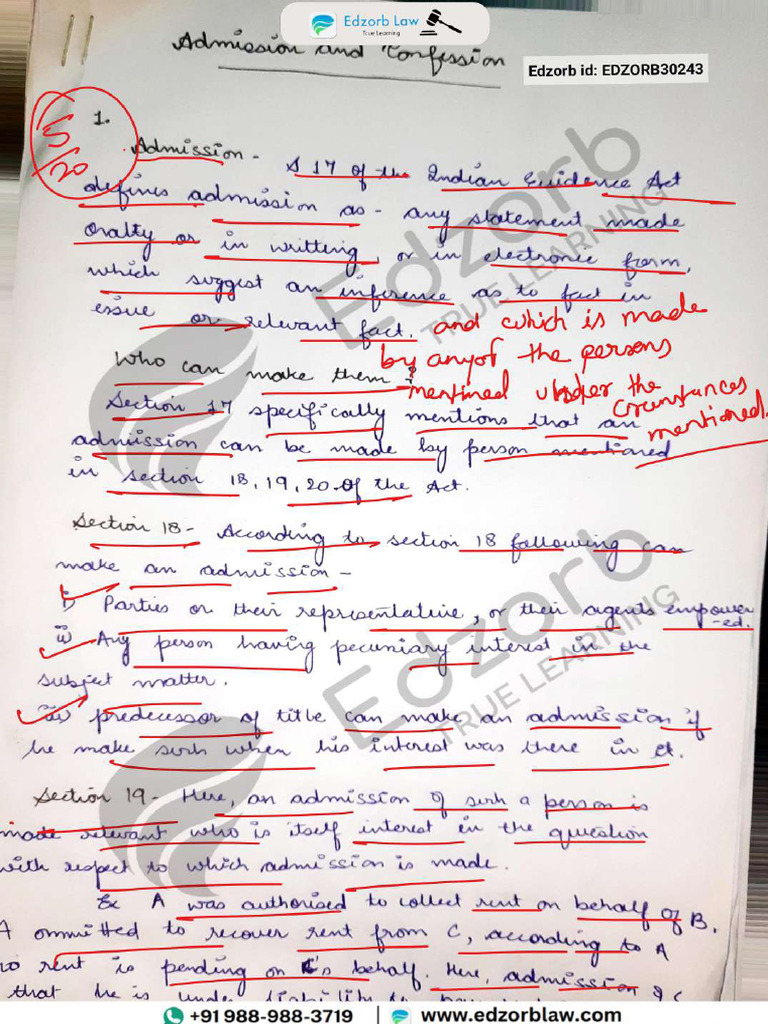 Edzorb Law
True Learning
Admission and Confession
Edzorb id: EDZORB30243
5/20
1.
Admission - S 17 of the Indian Evidence Act
defines admission as - any statement made
orally or in writting, or in electronic form,
which suggest an inference as to fact in
issue or relevant fact. and which is made
by any of the persons
Who can make them - mentined under the
circumstances
mentioned.
Section 17 specifically mentions that an
admission can be made by person mentioned
in section 18, 19, 20 of the Act.
Section 18 - According to section 18 following can
make an admission -
i) Parties or their representative, or their agents empower
-ed.
ii) Any person having pecuniary interest in the
subject matter.
iii) predecessor of title can make an admission if
he make such when his interest was there in it.
Section 19 - Here, an admission of such a person is
made relevant who is itself interest in the question
with respect to which admission is made.
Ex A was authorised to collect rent on behalf of B.
A ommitted to recover rent from C, according to A
no rent is pending on C's behalf. Here, admission of C
that he is under liability to
Edzorb
TRUE LEARNING
Edzorb
TRUE LEARNING
+91 988-988-3719 | www.edzorblaw.com